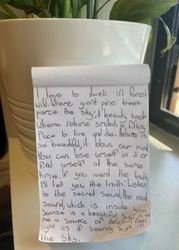 I love to dwell in forest
wild where giant pine trees
pierce the sky; it beauty spot
where nature smiled, a fitting
Place to live and die. Nature is
so beautiful, it blows our mind
You can lose urself in it or
find urself at the same
time. If you want the truth
I'll tell you the truth: Listen
to the secret sound, the real
sound, which is inside u.
Sunrise is a beautiful
me a source of
light as if
the sky.